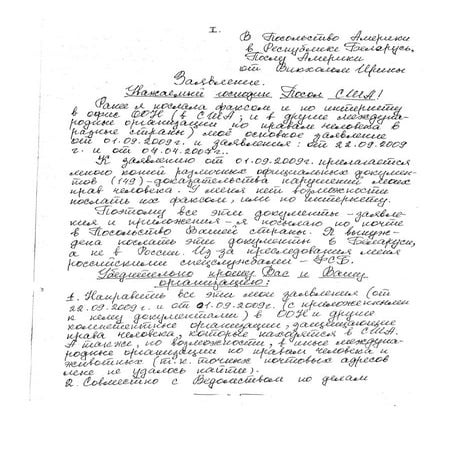 I.
В Посольство Америки
в Республике Беларусь.
Послу Америки
от Ирины
Заявление.
Уважаемый господин Посол США!
Ранее я послала факсом и по интернету
в офис ООН (в США; и в другие междуна-
родные организации по правам человека в
разные страны) моё основное заявление
от 01.09.2009г. и заявления: от 22.09.2009
г. и от
К заявлению от 01.09.2009г. прилагается
много копий различных официальных докумен-
тов (149) - доказательства нарушений моих
прав человека. У меня нет возможности
послать их факсом, или по интернету.
Поэтому все эти документы - заявле-
ния и приложения - я посылаю по почте
в Посольство Вашей страны. Я вынуж-
дена послать эти документы в Беларуси,
а не в России. Из-за преследования меня
российскими спецслужбами - ФСБ.
Убедительно прошу Вас и Вашу
организацию:
1. Направить все эти мои заявления (от
22.09.2009г. и от 01.09.2009г. (с приложенными
к нему документами) в ООН и другие
компетентные организации, защищающие
права человека, которые находятся в США.
А также, по возможности, в иные междуна-
родные организации по правам человека и
животных (т.к. точных почтовых адресов
мне не удалось найти).
2. Совместно с Ведомством по делам